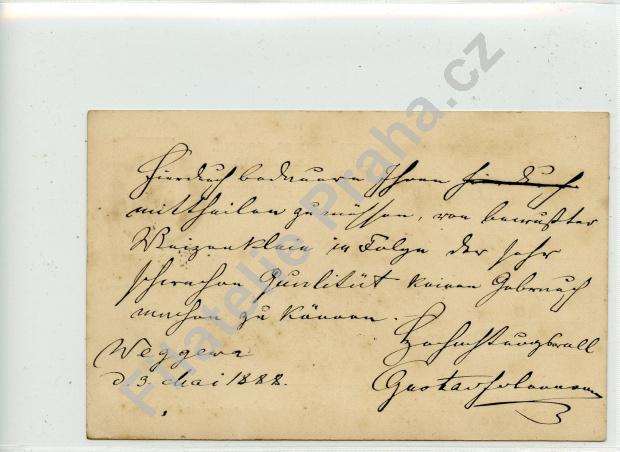 Hierdurch bedauere Ihnen hierdurch
mittheilen zu müssen, von bewußter
Weizenkleie in Folge der sehr
schwachen Qualität keinen Gebrauch
machen zu können.
Hochachtungsvoll
Weggewa
d. 3. Mai 1888.
Gustav
Filatelie Praha.cz